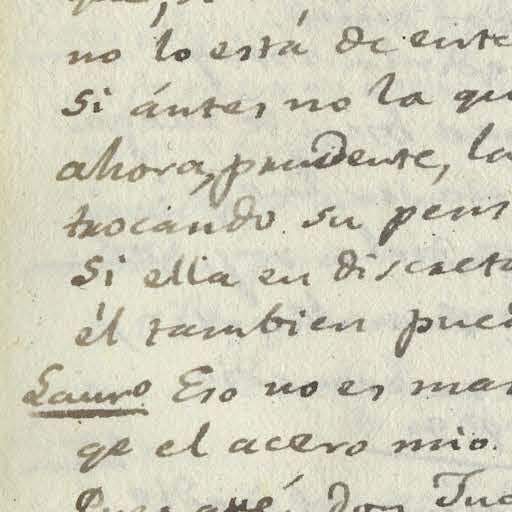 no lo está de ente
Si ántes no la qu
ahora, prudente, la
trocando su pens
Si ella en discreto
él tambien pued
Lauro Eso no es mas
qe el acero mio.
Pues qué, don